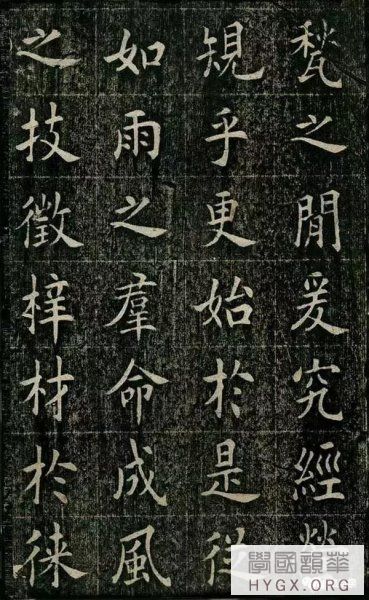 甃之閒爰究經
規乎更始於是
如雨之羣命成風
之技徵梓材於徠
學國韻華
HYGX.ORG